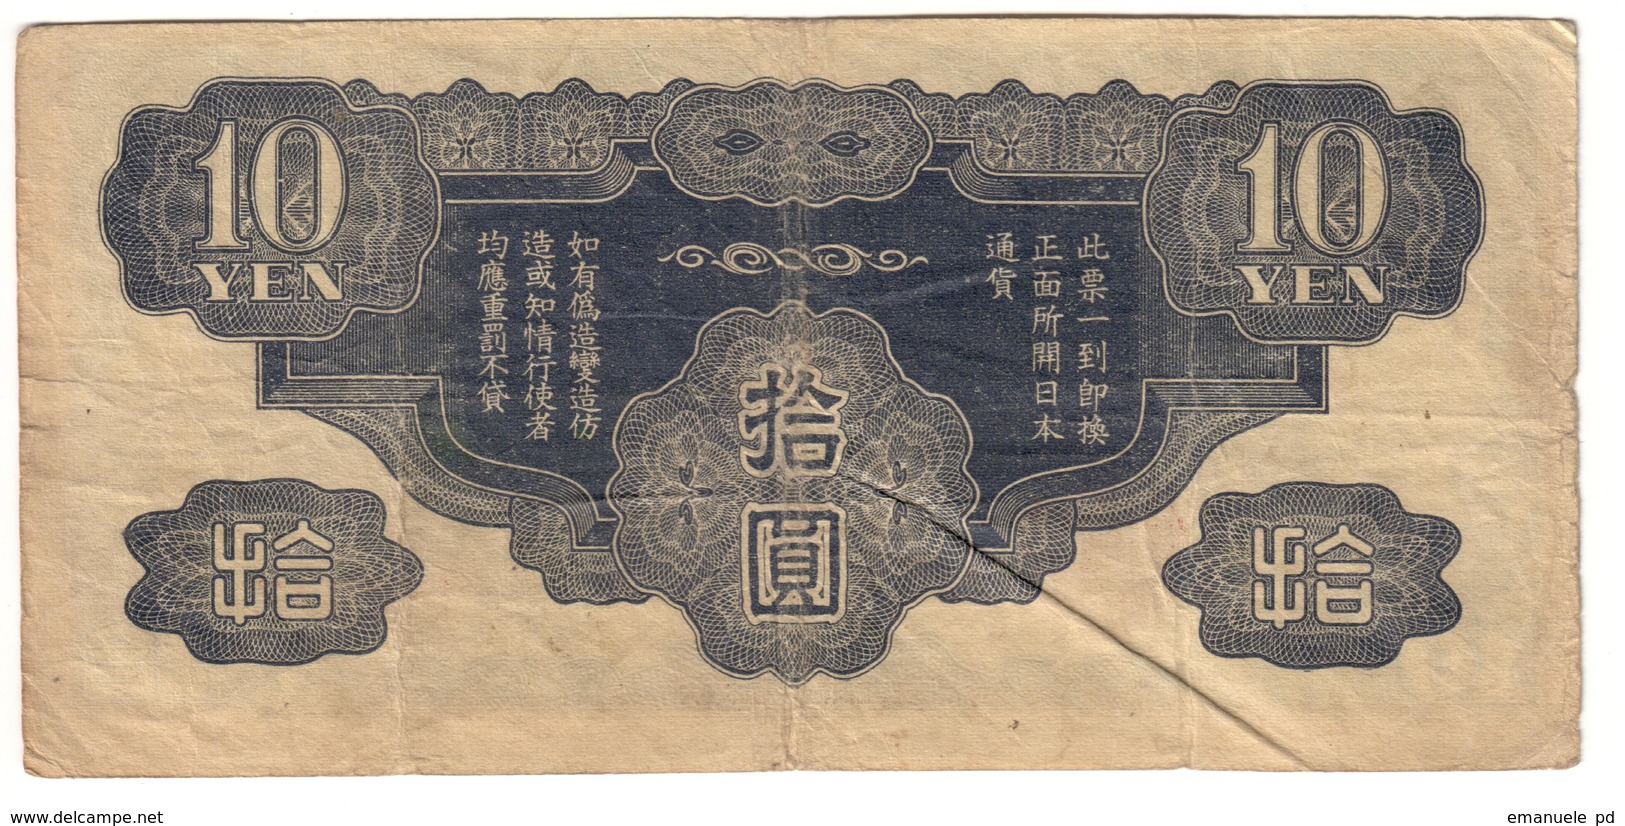 10
YEN
10
YEN
此票一到卽換
正面所開日本
通貨
如有僞造變造仿
造或知情行使者
均應重罰不貸
拾
圓
拾
拾
www.delcampe.net
emanuele pd